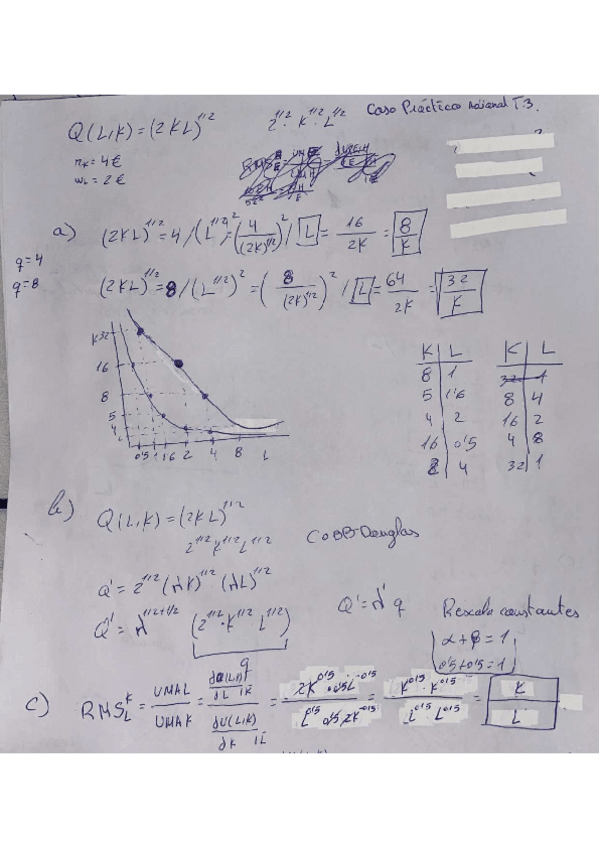 Caso Práctico Adicional T.3.
Q(L,K) = (2KL)^1/2    2^1/2 · K^1/2 · L^1/2
r_K = 4€
w_L = 2€
a) (2KL)^1/2 = 4 / (L^1/2)^2 = (4/(2K)^1/2)^2 / L = 16/2K = 8/K
q=4
q=8
(2KL)^1/2 = 8 / (L^1/2)^2 = (8/(2K)^1/2)^2 / L = 64/2K = 32/K
K 32
16
8
5
4
0'5 1 1'6 2 4 8 L
K L
8 1
5 1'6
4 2
16 0'5
2 4
K L
32 1
8 4
16 2
4 8
32 1
b) Q(L,K) = (2KL)^1/2
2^1/2 K^1/2 L^1/2
COBB-Douglas
Q' = 2^1/2 (λK)^1/2 (λL)^1/2
Q' = λ^1/2+1/2 (2^1/2 · K^1/2 L^1/2)
q
Q' = λ^1 q    constantes
α + β = 1
0'5 + 0'5 = 1
c) RMS^K_L = UMAL/UMAK = = = K^0'5 · K^0'5 / L^0'5 · L^0'5 = K/L